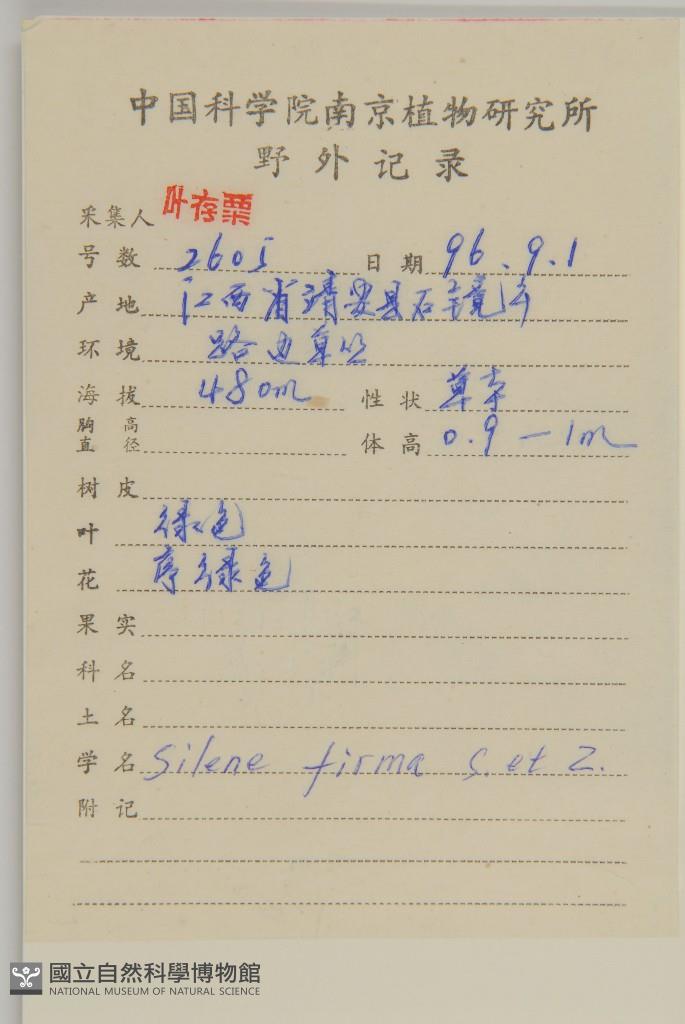 中国科学院南京植物研究所
野外记录
采集人 叶存粟
号数 2605 日期 96.9.1
产地 江西省靖安县石境
环境 路边草丛
海拔 480m 性状 草本
胸高直径 体高 0.9—1m
树皮
叶 绿色
花 序绿色
果实
科名
土名
学名 Silene firma S. et Z.
附记
國立自然科學博物館
NATIONAL MUSEUM OF NATURAL SCIENCE